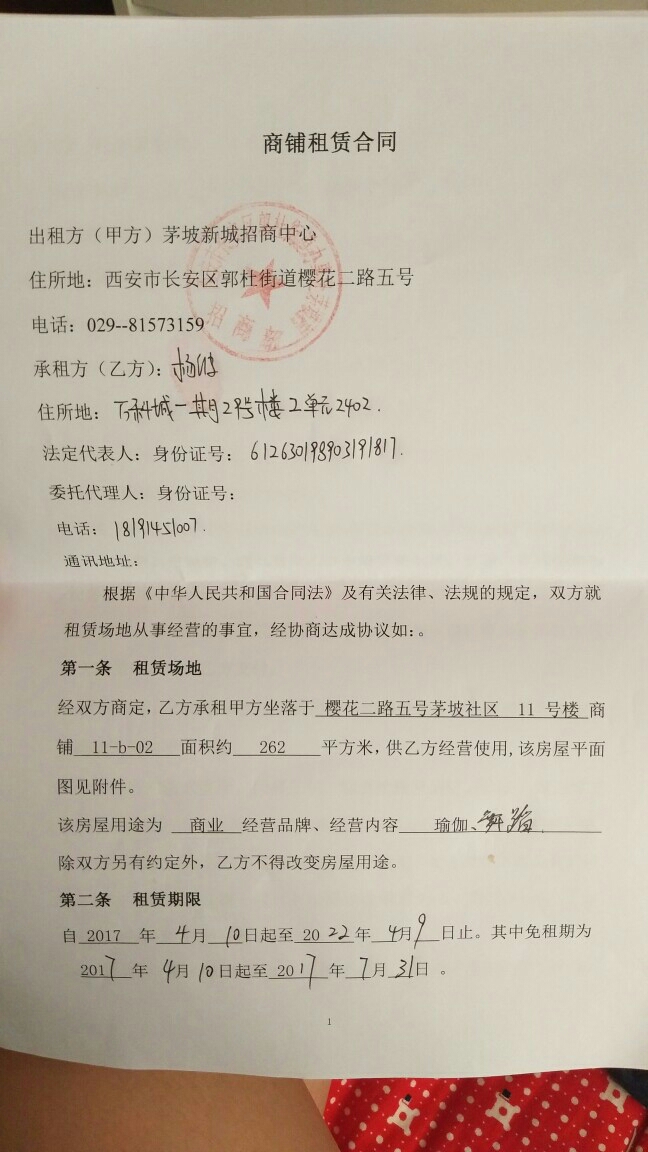 商铺租赁合同
出租方（甲方）茅坡新城招商中心
住所地：西安市长安区郭杜街道樱花二路五号
电话：029--81573159
承租方（乙方）：杨
住所地：万科城一期2号楼2单元2402.
法定代表人：身份证号：612630198903191817.
委托代理人：身份证号：
电话：18191451007.
通讯地址：
根据《中华人民共和国合同法》及有关法律、法规的规定，双方就
租赁场地从事经营的事宜，经协商达成协议如：。
第一条 租赁场地
经双方商定，乙方承租甲方坐落于 樱花二路五号茅坡社区 11 号楼 商
铺 11-b-02 面积约 262 平方米，供乙方经营使用,该房屋平面
图见附件。
该房屋用途为 商业 经营品牌、经营内容 瑜伽、舞蹈.
除双方另有约定外，乙方不得改变房屋用途。
第二条 租赁期限
自 2017 年 4月 10日起至 2022年 4月9日止。其中免租期为
2017年 4月10日起至2017年 7月31日 。
1
招商部